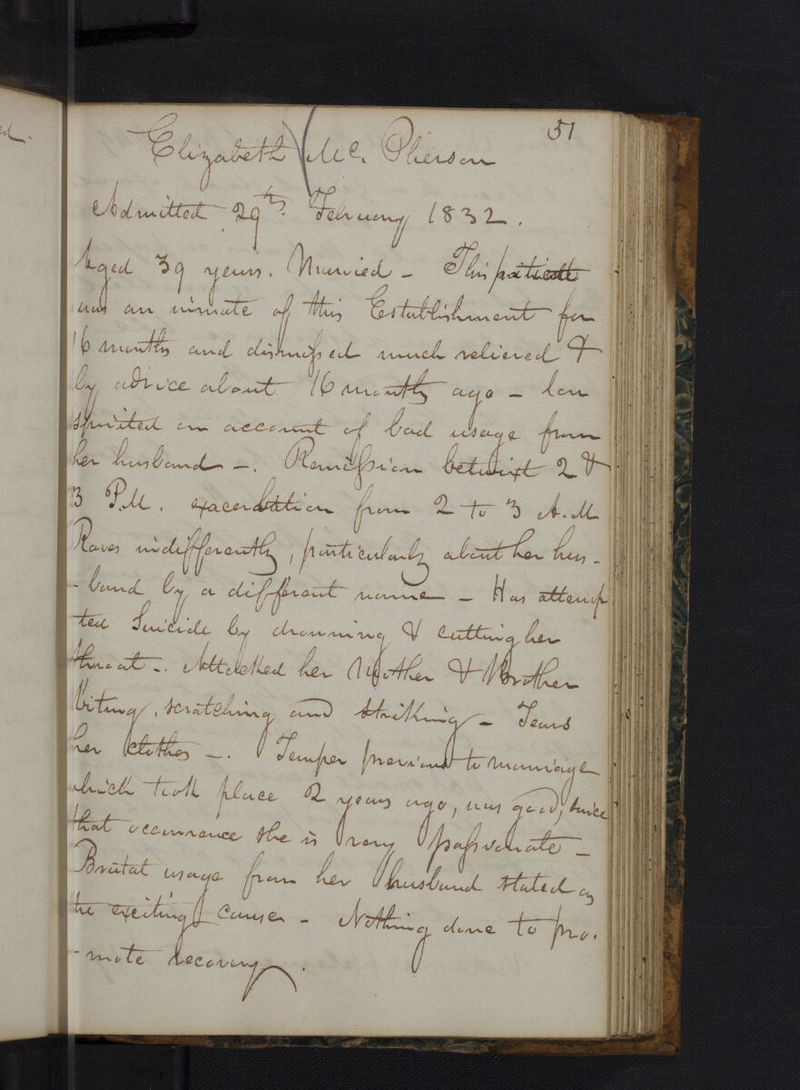 51
Elizabeth Mc. Pherson
Admitted 29th. February 1832.
Aged 39 years. Married - This patient
was an inmate of this Establishment for
16 months and dismissed much relieved &
by advice about 16 months ago - low
spirited on account of bad usage from
her husband -. Remission betwixt 2 &
3 P.M. exacerbation from 2 to 3 A.M
Raves indifferently, particularly about her hus-
-band by a different name - Has attemp
ted Suicide by drowning & cutting her
throat -. Attacked her Mother & Brother
biting, scratching and striking - Tears
her clothes -. Temper previous to marriage
which took place 2 years ago, was good, since
that occurrence she is very passionate -
Brutal usage from her husband stated as
the exciting cause - Nothing done to pro-
-mote recovery.